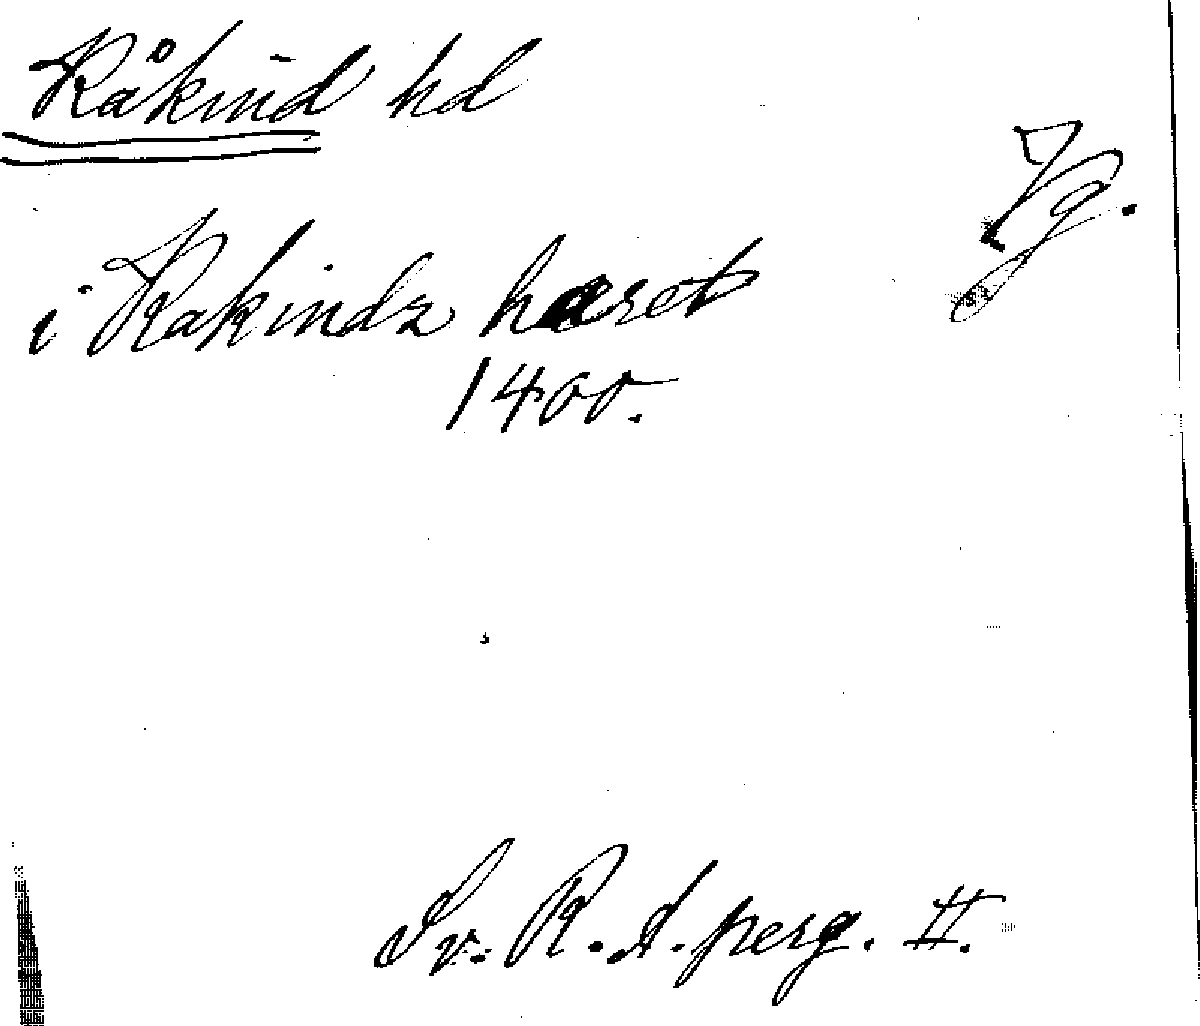 Kåkind hd
Vg.
i Kakindz hæret
1400.
Sv. R. A. perg. II.